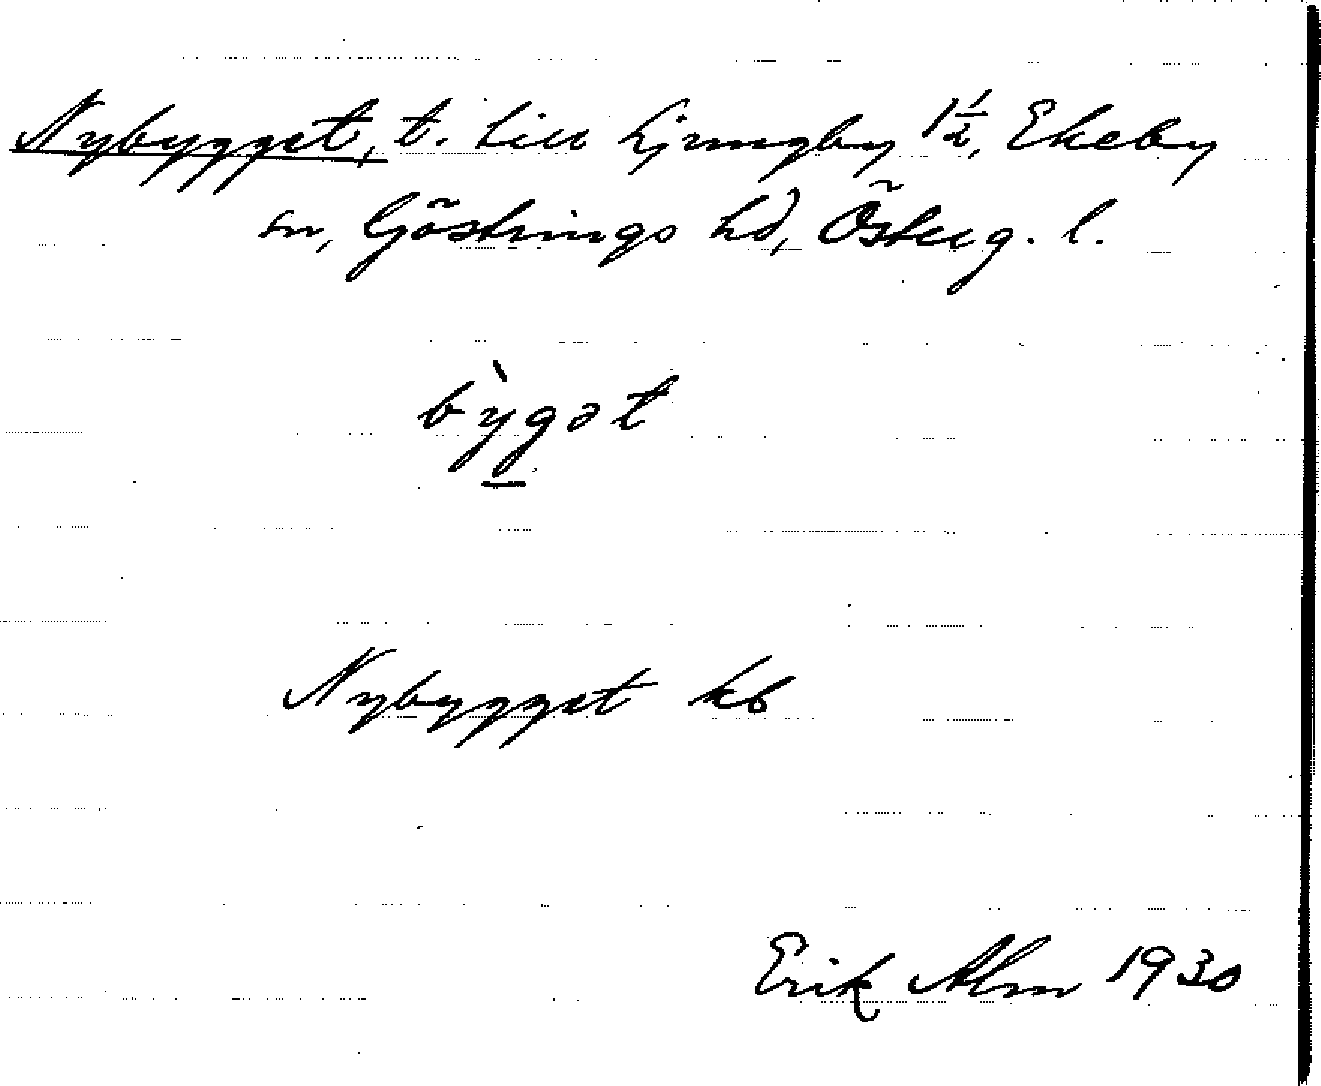 Nybygget, t. till Ljungby 1 1/2, Ekeby
sn, Göstrings hd, Österg. l.
bỳgət
Nybygget kb
Erik Alm 1930